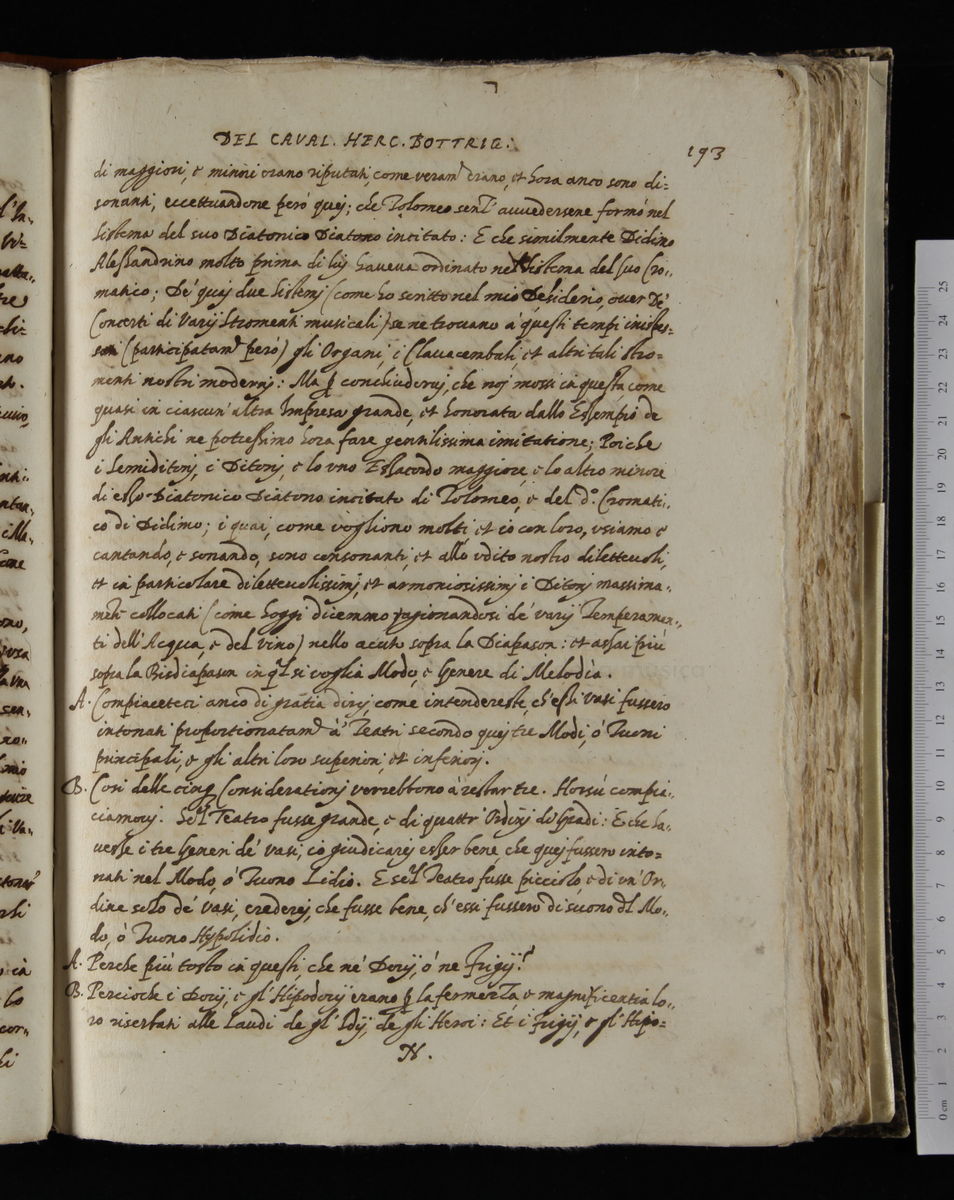 DEL CAVAL. HERC. BOTTRIG:
193
di maggiori, e minori erano riputati, come veram.te erano, et hora anco sono di=
sonanti; eccettuandone però quej; che Tolomeo senz' avvedersene formò nel
sistema del suo Diatonico Diatono incitato: E che similmente Didino
Alessandrino molto prima di lui haveva ordinato nel sistema del suo Cro..
matico; De' quaj due sistemj (come ho scritto nel mio Desiderio, over De'
Concerti di Varij Stromenti musicali) se ne trovano à questi tempi
(participatam.te però) gli Organi, i Clavacembali, et altri tali stro=
menti nostri modernj: Ma conchiuderej, che noj mossi in questa come
quasi in ciascun' altra Impresa grande, et honorata dallo Essempio de
gli Antichi ne potressimo hora fare gentilissima imitatione; Poiche
i Semiditonj, i Ditonj, e lo uno Essacordo maggiore, e lo altro minore
di esso Diatonico Diatono incitato di Tolomeo, e del d.º Cromati..
co di Didimo; i quai, come vogliono molti, et io con loro, usiamo e
cantando, e sonando, sono consonanti, et allo udito nostro dilettevoli,
et in particolare dilettevolissimj, et armoniosissimj i Ditonj massima.
mẽte collocati (come hoggi dicemmo ragionandosi de' varij Temperamen..
ti dell' Acqua, e del vino) nello acuto sopra la Diapason: et assai più
sopra la Bisdiapason in ql si voglia Modo, e Genere di Melodia.
A. Compiaceteci anco di gratia dirci come intendereste, ch'essi vasi fussero
intonati proportionatam.te à Teatri secondo quej tre Modi, ò Tuoni
principali, e gli altri loro superiori, et inferiorj.
B. Cosi delle cinq Considerationj verrebbono à restar tre. Horsù compia..
ciamovj. Se'l Teatro fusse grande, e di quattr' Ordinj di Gradi: E che ha..
vesse i tre Generi de' vasi, io giudicarej esser bene, che quej fussero into=
nati nel Modo, ò Tuono Lidio. E se'l Teatro fusse picciolo, e di un' Or..
dine solo de' vasi, crederej, che fusse bene, ch'essi fussero di suono dl Mo..
do, ò Tuono Hypolidio.
A. Perche più tosto in questi, che ne' Dorij, ò ne Frigij?
B. Percioche i Dorij, e gl' Hipodorij erano la fermezza, e magnificentia lo..
ro riserbati alle Laudi de gl' Idij, de gli Heroi: Et i Frigij, e gl' Hipo=
N.